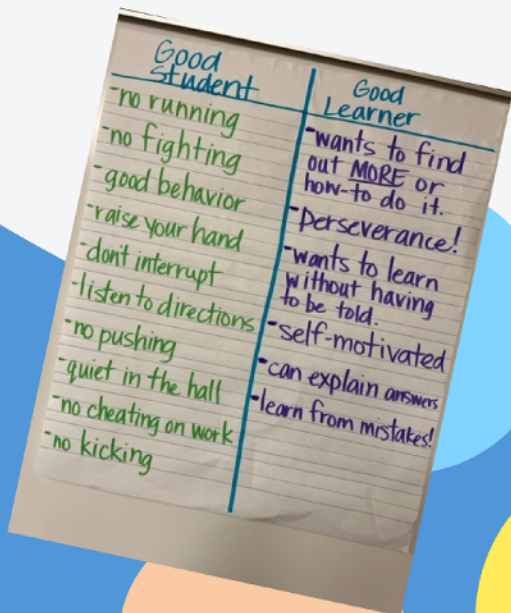 Good
Student
-no running
-no fighting
-good behavior
-raise your hand
-don't interrupt
-listen to directions
-no pushing
-quiet in the hall
-no cheating on work
-no kicking
Good
Learner
-wants to find
out MORE or
how-to do it.
-perseverance!
-wants to learn
without having
to be told.
-self-motivated
-can explain answers
-learn from mistakes!